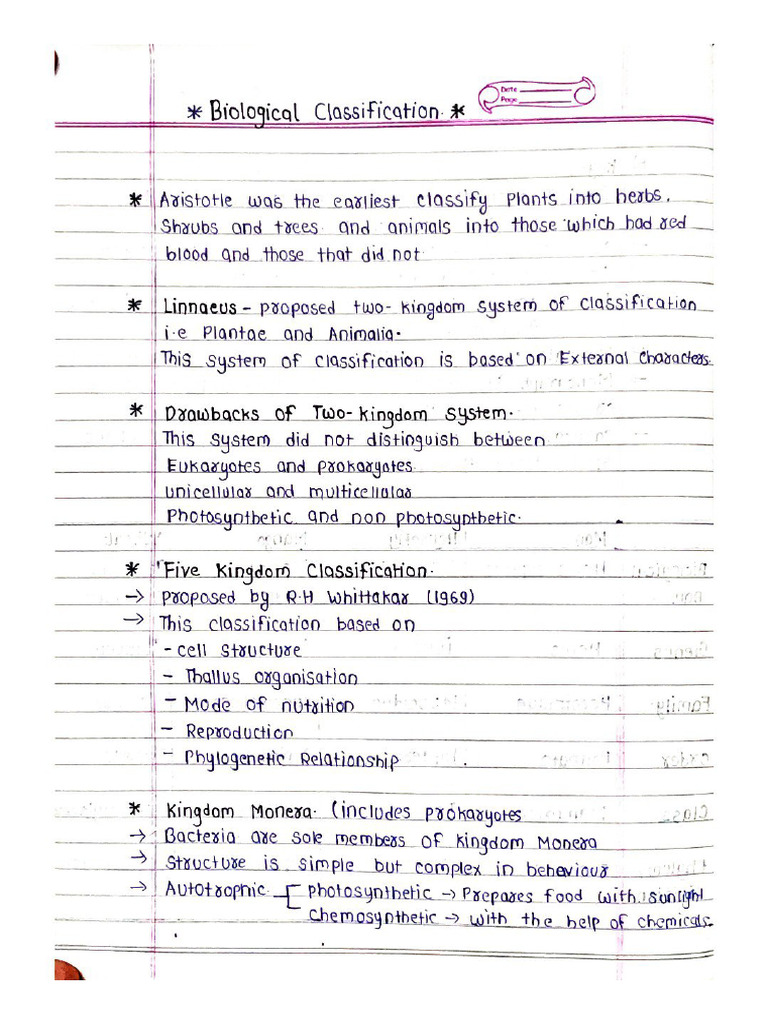 Date
Page
* Biological Classification. *
* Aristotle was the earliest classify plants into herbs,
Shrubs and trees and animals into those which had red
blood and those that did not
* Linnaeus - proposed two-kingdom system of classification
i.e Plantae and Animalia.
This system of classification is based on External Characters
* Drawbacks of Two-kingdom system.
This system did not distinguish between
Eukaryotes and prokaryotes
unicellular and multicellular
Photosynthetic and non photosynthetic.
* Five Kingdom Classification.
→ proposed by R.H Whittakar (1969)
→ This classification based on
- cell structure
- Thallus organisation
- Mode of nutrition
- Reproduction
- Phylogenetic Relationship
* Kingdom Monera. (includes prokaryotes
→ Bacteria are sole members of kingdom Monera
→ Structure is simple but complex in behaviour
→ Autotrophic [ photosynthetic → Prepares food with sunlight
Chemosynthetic → with the help of chemicals.